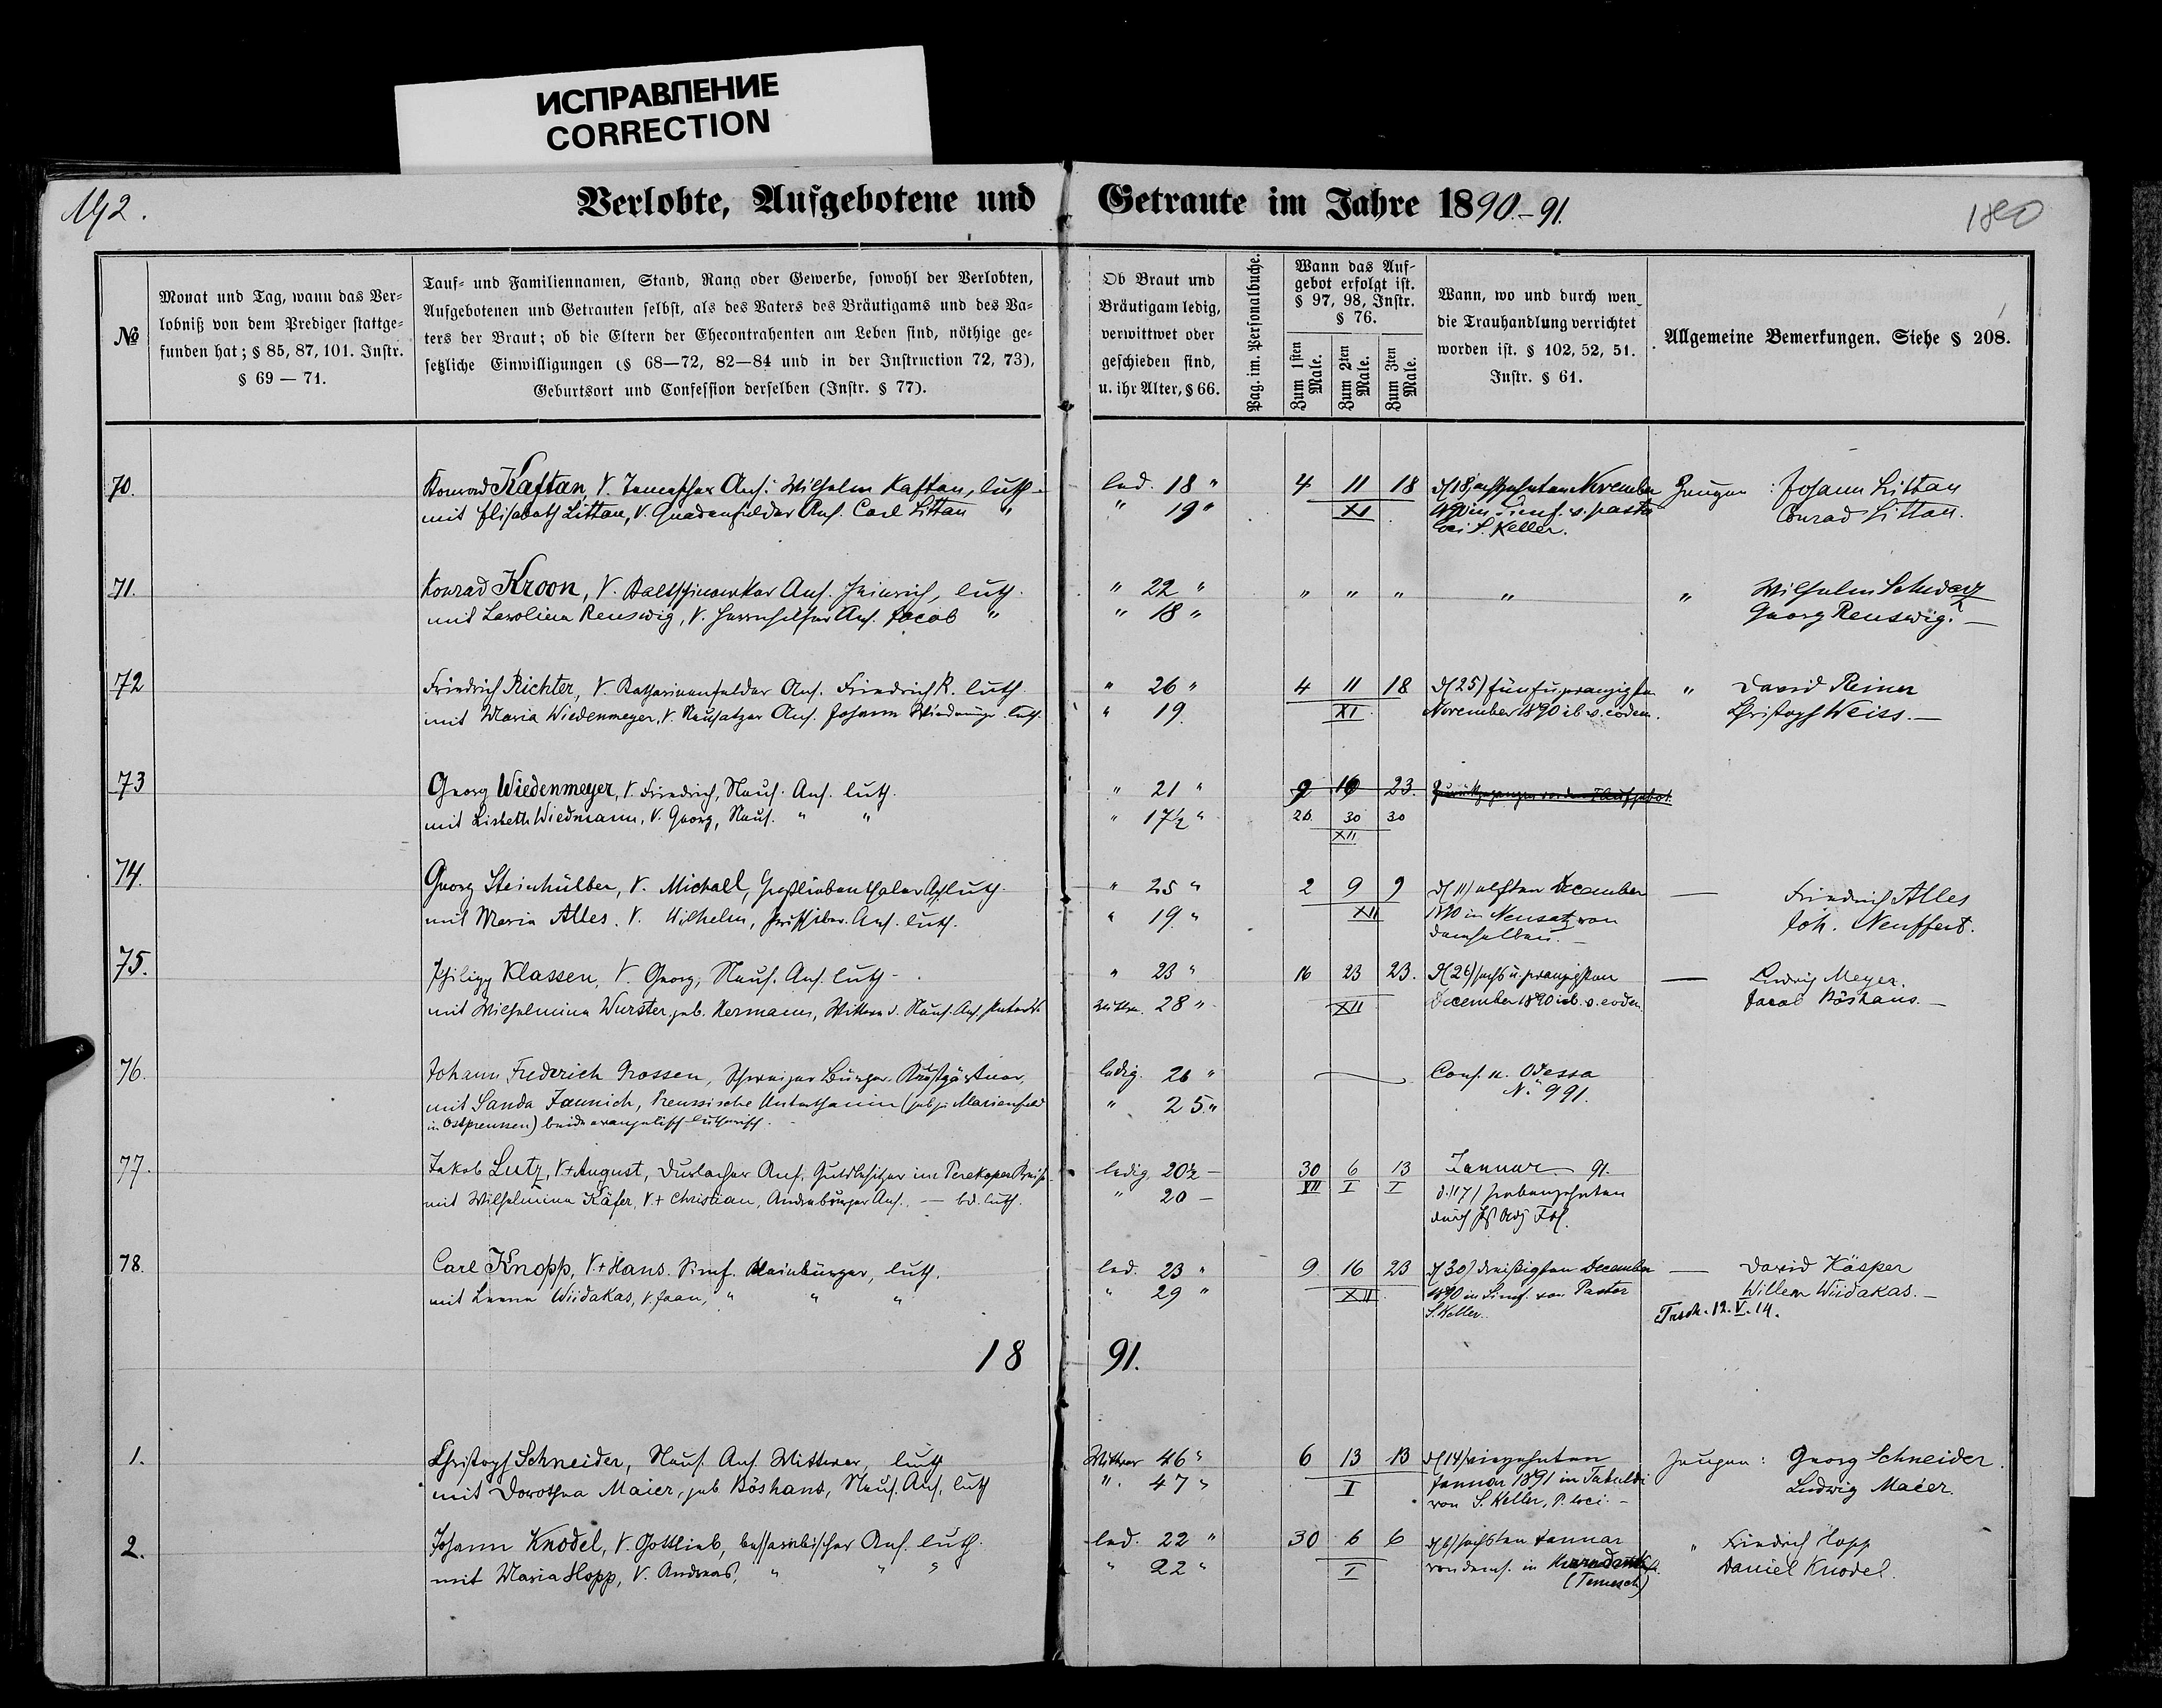 ИСПРАВЛЕНИЕ
CORRECTION
192.
Verlobte, Aufgebotene und Getraute im Jahre 1890.-91.
180
№
Monat und Tag, wann das Ver-
lobniß von dem Prediger stattge-
funden hat; § 85, 87, 101. Instr.
§ 69 — 71.
Tauf- und Familiennamen, Stand, Rang oder Gewerbe, sowohl der Verlobten,
Aufgebotenen und Getrauten selbst, als des Vaters des Bräutigams und des Va-
ters der Braut; ob die Eltern der Ehecontrahenten am Leben sind, nöthige ge-
setzliche Einwilligungen (§ 68—72, 82—84 und in der Instruction 72, 73),
Geburtsort und Confession derselben (Instr. § 77).
Ob Braut und
Bräutigam ledig,
verwittwet oder
geschieden sind,
u. ihr Alter, § 66.
Pag. im. Personalbuche.
Wann das Auf-
gebot erfolgt ist.
§ 97, 98, Instr.
§ 76.
Zum 1sten
Male.
Zum 2ten
Male.
Zum 3ten
Male.
Wann, wo und durch wen
die Trauhandlung verrichtet
worden ist. § 102, 52, 51.
Instr. § 61.
Allgemeine Bemerkungen. Siehe § 208.
70. Konrad Kaftan, V. Ans. Wilhelm Kaftan, luth. led. 18 " 4 11 18 d/18/ achtzehnten November Zeugen : Johann Littau
mit Elisabeth Littau, V. Gnadenfelder Ans. Carl Littau " " 19 " XI 1890 in Simf. v. Pastor Conrad Littau.
loci S. Keller.
71. Konrad Kroon, V. Ans. Heinrich, luth. " 22 " " " " " " Wilhelm Schwarz
mit Karolina Renswig, V. Ans. Jacob " " 18 " Georg Renswig. —
72 Friedrich Richter, V. Katharinenfelder Ans. Friedrich R. luth. " 26 " 4 11 18 d/25/ " David Reiner
mit Maria Wiedenmeyer, V. Neusatzer Ans. Johann luth. " 19. XI November 1890 ib. v. eodem. Christoph Weiss. —
73 Georg Wiedenmeyer, V. Friedrich, Neus. Ans. luth. " 21 " 9 16 23.
mit Lisbeth Wiedmann, V. Georg, Neus. " " " 17½ " 26 30 30
XII
74. Georg Steinhülber, V. Michael, Großliebenthaler luth. " 25 " 2 9 9 d/11/ elften December — Friedrich Alles
mit Maria Alles, V. Wilhelm, Ans. luth. " 19. " XII 1890 in Neusatz von Joh. Neuffert.
demselben. —
75. Philipp Klassen, V. Georg, Neus. Ans. luth — " 23 " 16 23 23. d/26/ sechs u. zwanzigsten — Ludwig Meyer.
mit Wilhelmina Wurster, geb. Hermann, Wittwe d. Neus. Ans. 28 " XII December 1890 ib. v. eodem Jacob Böshans. —
76. Johann Frederich Grossen, Schweizer Bürger, Kunstgärtner, ledig. 26 " Cons. n. Odessa
mit Sanda Jannich, Preussische Unterthanin (geb. zu Marienfeld " 25. " N° 991.
in Ostpreussen) beide evangelisch-lutherisch.
77. Jakob Lutz, V+ August, Durlacher Ans. Gutsbesitzer im Perekoper Kreise ledig. 20½ — 30 6 13 Januar 91.
mit Wilhelmina Käfer, V.+ Christian, Ans. — bd. luth. " 20 — XII I I d. /17/ siebenzehnten
durch
78. Carl Knopp, V+ Hans. Simf. Kleinbürger, luth. led. 23 " 9 16 23 d/30/ dreißigsten December — David Käsper
mit Leena Wiidakas, V. Jaan, " " " " 29 " XII 1890 in Simf. von Pastor Willem Wiidakas. —
S. Keller. 12. V. 14.
18 91.
1. Christoph Schneider, Neus. Ans. Wittwer, luth Wittwer 46 " 6 13 13 d/14/ vierzehnten Zeugen: Georg Schneider.
mit Dorothea Maier, geb. Böshans, Neus. Ans. luth " 47 " I Januar 1891 in Tabuldi Ludwig Maier.
von S. Keller, P. loci. —
2. Johann Knodel, V. Gottlieb, bessarabischer Ans. luth. led. 22 " 30 6 6 d/6/ sechsten Januar " Friedrich Hopp
mit Maria Hopp, V. Andreas, " " " " 22 " I von dems. in Daniel Knodel.
(Temesch)